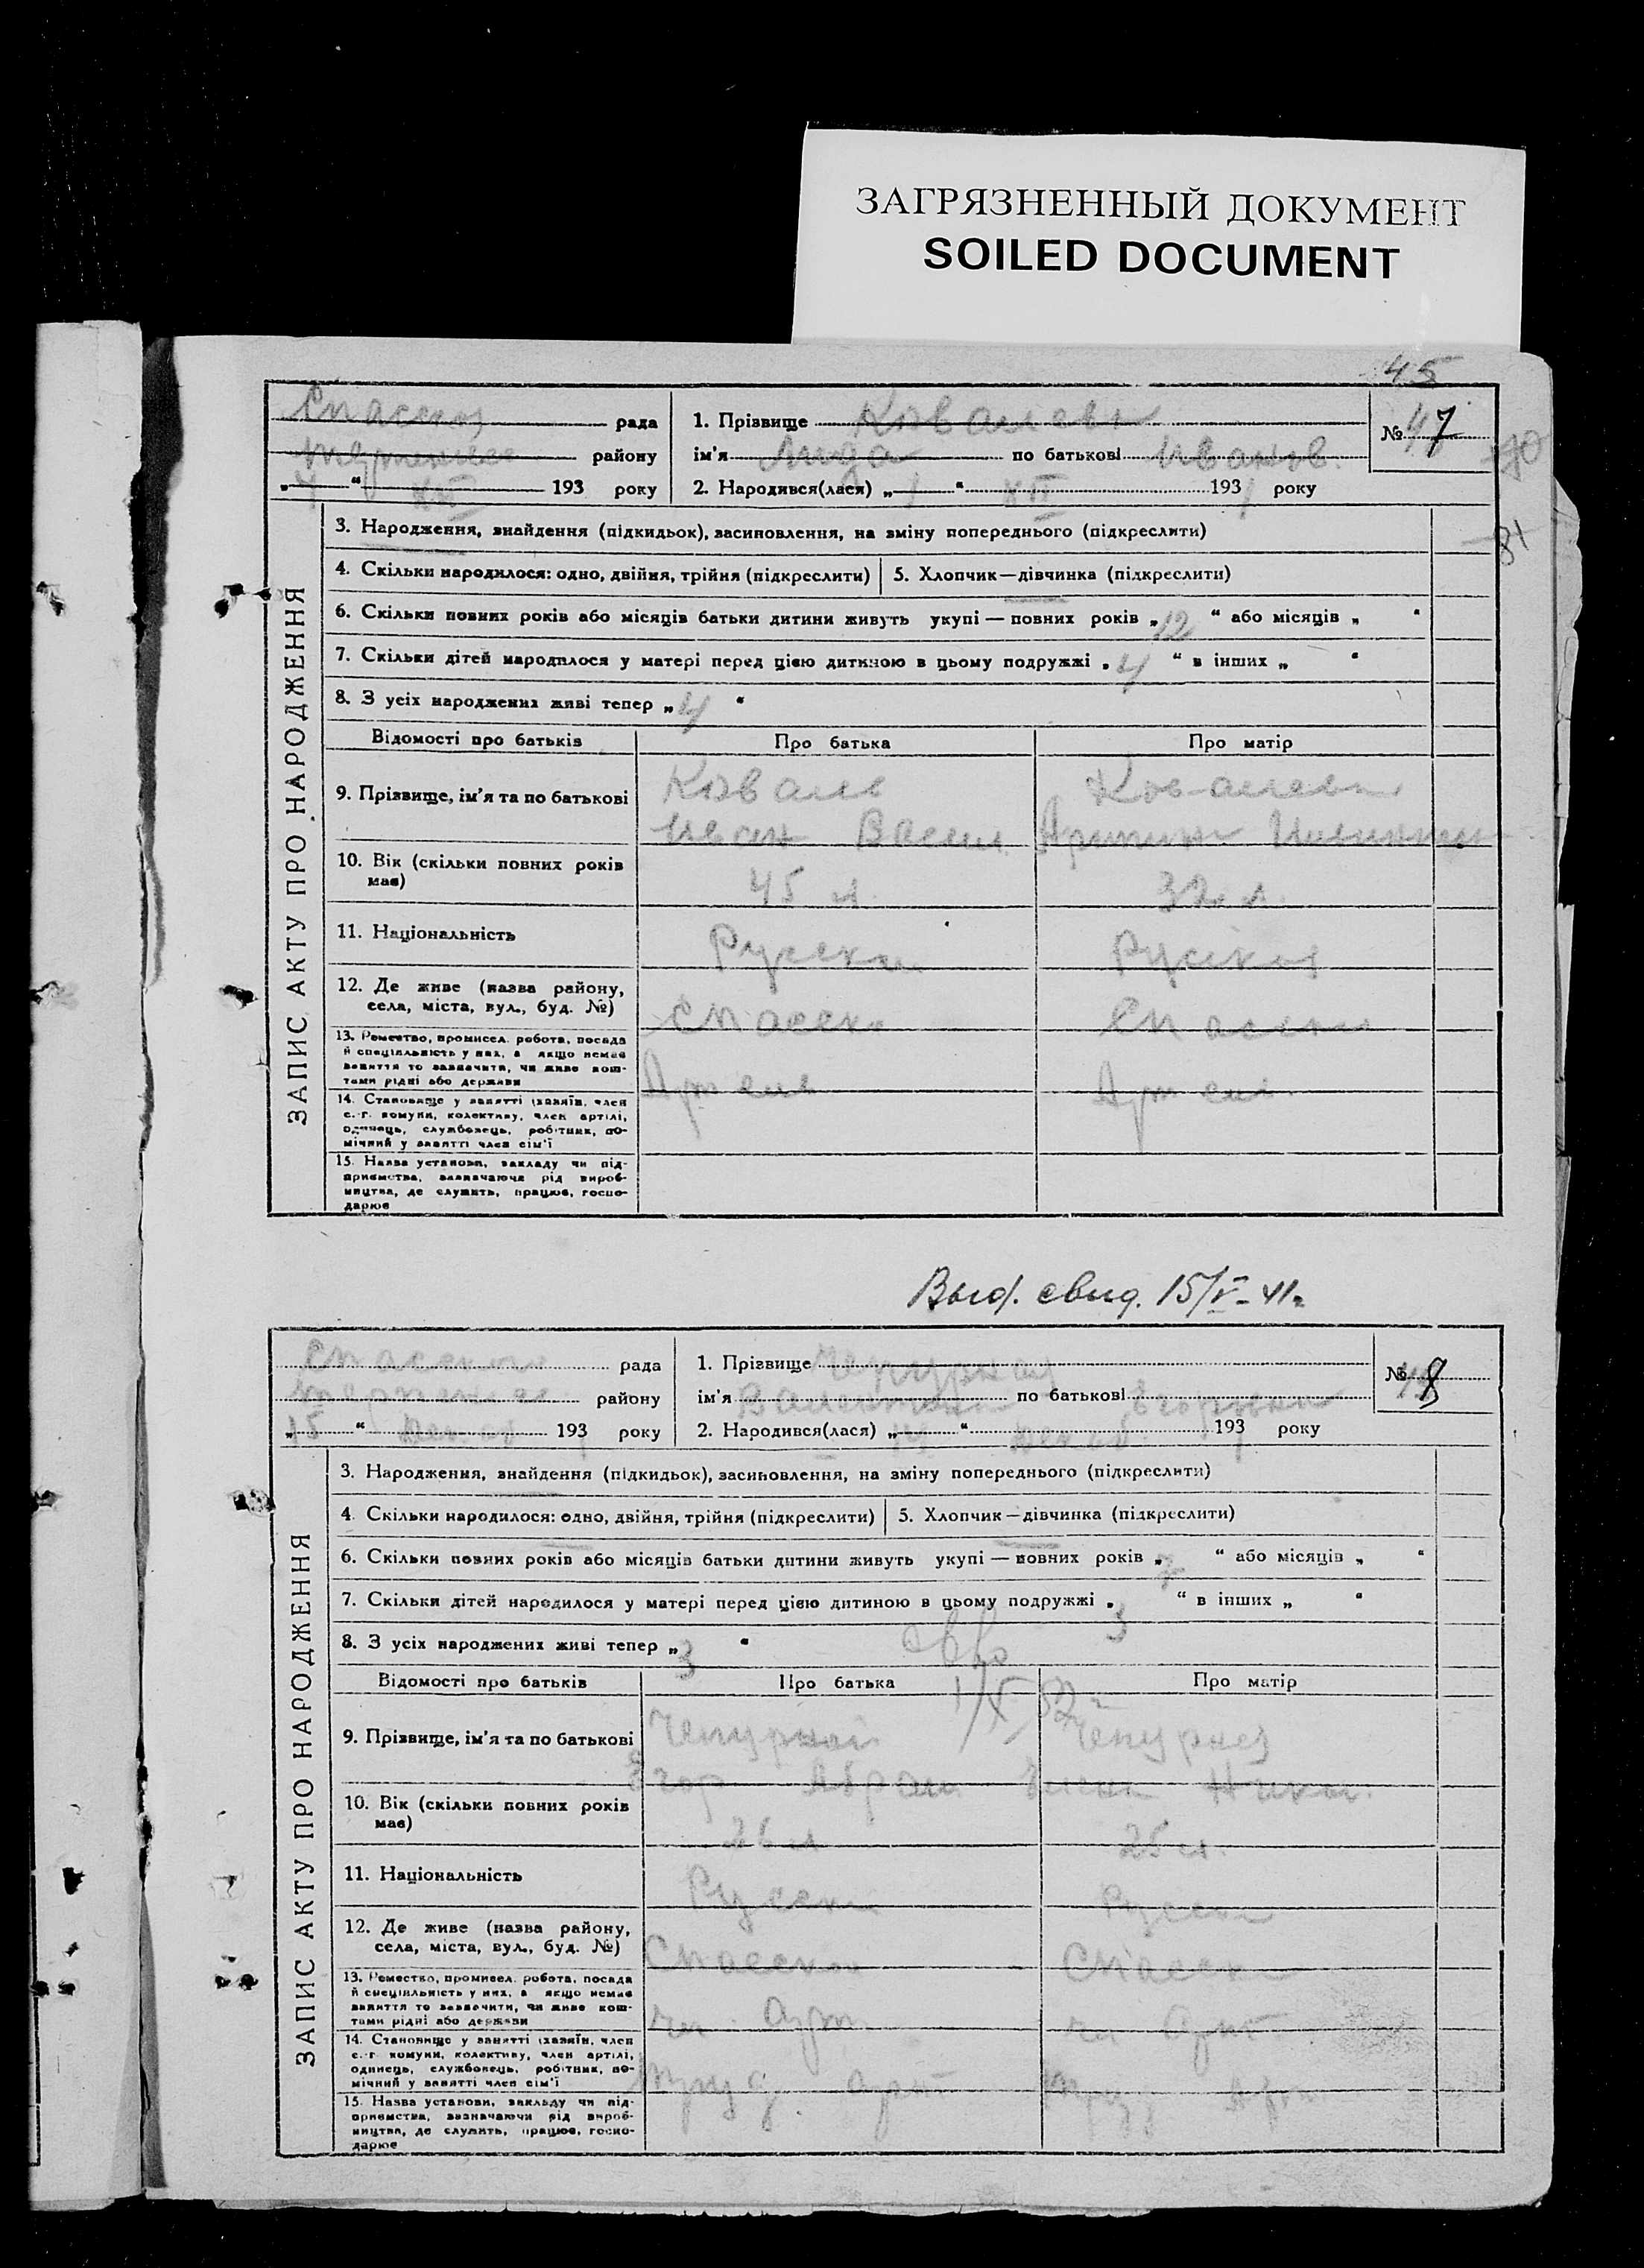 ЗАГРЯЗНЕННЫЙ ДОКУМЕНТ
SOILED DOCUMENT
45
рада
1. Прізвище
№ 7
району
ім'я Лида по батькові Иванов.
„4“ XII 193 року
2. Народився(лася) „ “ XII 1931 року
ЗАПИС АКТУ ПРО НАРОДЖЕННЯ
3. Народження, знайдення (підкидьок), засиновлення, на зміну попереднього (підкреслити)
4. Скільки народилося: одно, двійня, трійня (підкреслити) 5. Хлопчик—дівчинка (підкреслити)
6. Скільки повних років або місяців батьки дитини живуть укупі — повних років „12“ або місяців „ “
7. Скільки дітей народилося у матері перед цією дитиною в цьому подружжі „4“ в інших „ “
8. З усіх народжених живі тепер „4“
Відомості про батьків Про батька Про матір
9. Прізвище, ім'я та по батькові
Коваль
Иван Васил
10. Вік (скільки повних років має)
45 л. 32 л.
11. Національність
Русски Руская
12. Де живе (назва району,
села, міста, вул., буд. №)
Спасско Спасско
13. Ремество, промисел, робота, посада
й спеціяльність у них, а якщо немає
заняття то зазначити, чи живе кош-
тами рідні або держави
Артель Артель
14. Становище у занятті (хазяїн, член
с.-г. комуни, колективу, член артілі,
одинець, службовець, робітник, по-
мічний у занятті член сім'ї
15. Назва установи, закладу чи під-
приємства, зазначаючи рід вироб-
ництва, де служить, працює, госпо-
дарює
Выд. свид. 15/V-41г.
рада
1. Прізвище Чепурная
№ 8
району
ім'я Валентина по батькові Егоровна
„15“ декаб 193 року
2. Народився(лася) „ “ декаб 1931 року
ЗАПИС АКТУ ПРО НАРОДЖЕННЯ
3. Народження, знайдення (підкидьок), засиновлення, на зміну попереднього (підкреслити)
4. Скільки народилося: одно, двійня, трійня (підкреслити) 5. Хлопчик—дівчинка (підкреслити)
6. Скільки повних років або місяців батьки дитини живуть укупі — повних років „7“ або місяців „ “
7. Скільки дітей народилося у матері перед цією дитиною в цьому подружжі „3“ в інших „ “
8. З усіх народжених живі тепер „3“
Відомості про батьків Про батька Про матір
9. Прізвище, ім'я та по батькові
Чепурной Чепурная
Егор Абрам Никол.
10. Вік (скільки повних років має)
26 л 25 л.
11. Національність
Русски Русск
12. Де живе (назва району,
села, міста, вул., буд. №)
Спасско Спасско
13. Ремество, промисел, робота, посада
й спеціяльність у них, а якщо немає
заняття то зазначити, чи живе кош-
тами рідні або держави
чл. Арт чл Арт
14. Становище у занятті (хазяїн, член
с.-г. комуни, колективу, член артілі,
одинець, службовець, робітник, по-
мічний у занятті член сім'ї
труд. арт труд Арт
15. Назва установи, закладу чи під-
приємства, зазначаючи рід вироб-
ництва, де служить, працює, госпо-
дарює